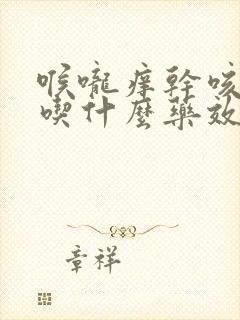 喉嚨痒幹咳
喫什麼藥效
章祥